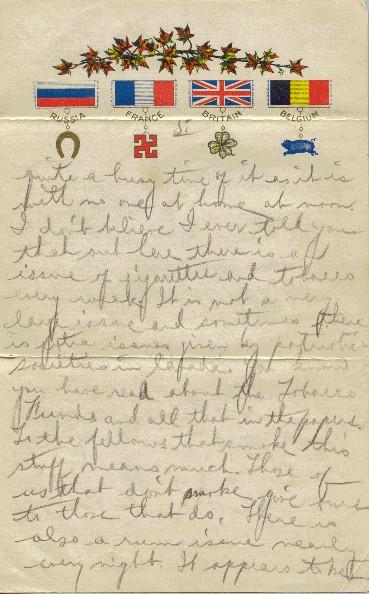 RUSSIA FRANCE BRITAIN BELGIUM
quite a busy time of it as it is
with no one at home at noon.
I don't believe I ever told you
that out here there is a
issue of cigarettes and tobacco
every week. It is not a very
large issue and sometimes there
is extra issues given by patriotic
societies in Canada. You know
you have read about the Tobacco
Funds and all that in the papers.
To the fellows that smoke this
stuff means much. Those of
us that don't smoke give hers
to those that do. There is
also a rum issue nearly
every night. It appears to be